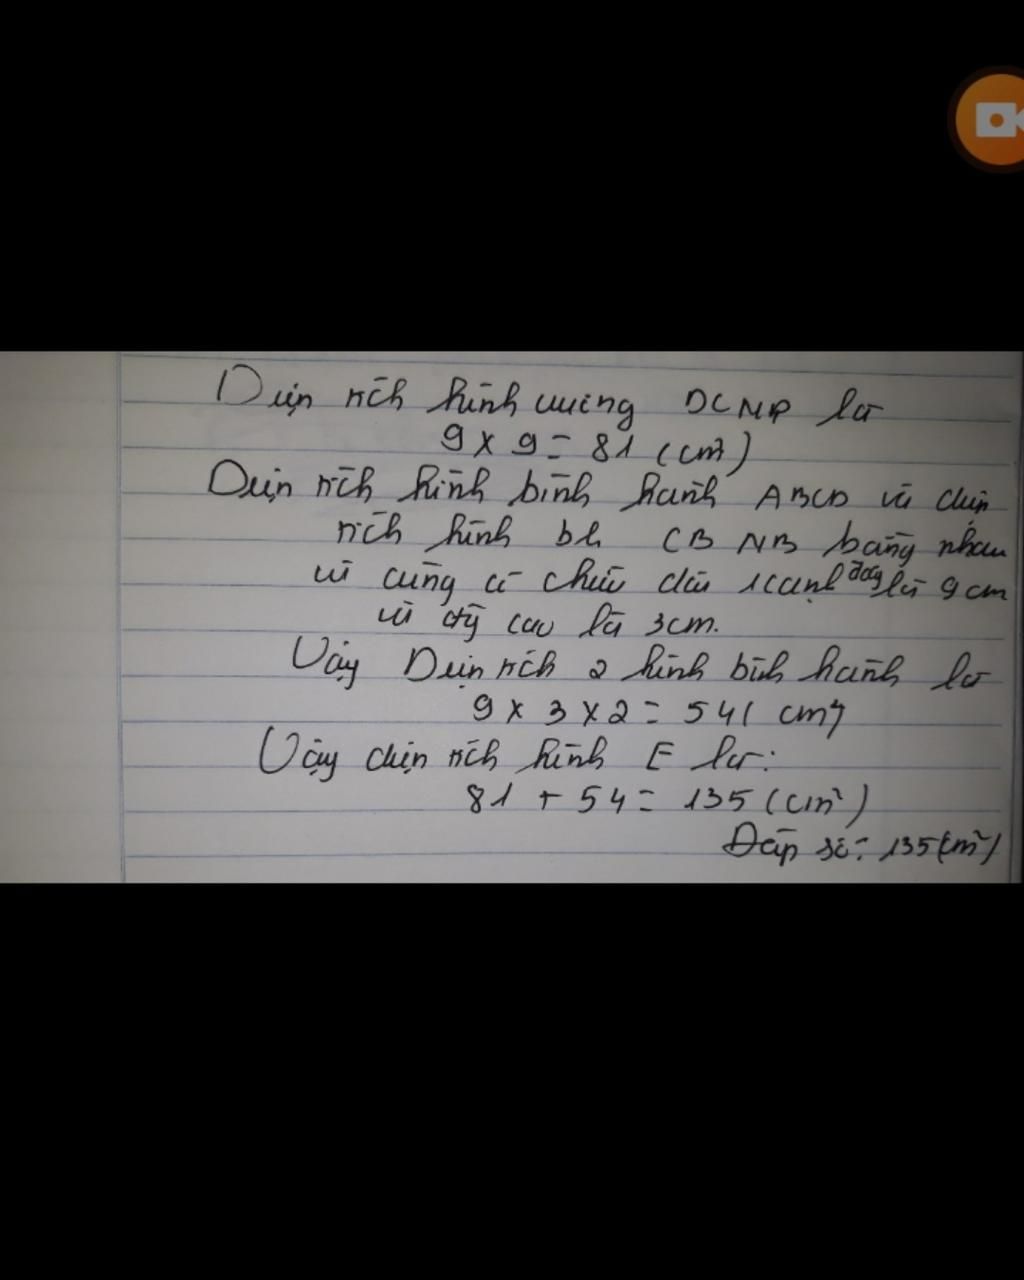 Diện tích hình vuông DCNP là
9 x 9 = 81 (cm²)
Diện tích hình bình hành ABCD và diện
tích hình bh CB NB bằng nhau
vì cùng có chiều dài 1 cạnh đáy là 9 cm
và độ cao là 3cm.
Vậy Diện tích 2 hình bình hành là
9 x 3 x 2 = 54 ( cm²)
Vậy diện tích hình E là:
81 + 54 = 135 (cm²)
Đáp số: 135 (cm²)